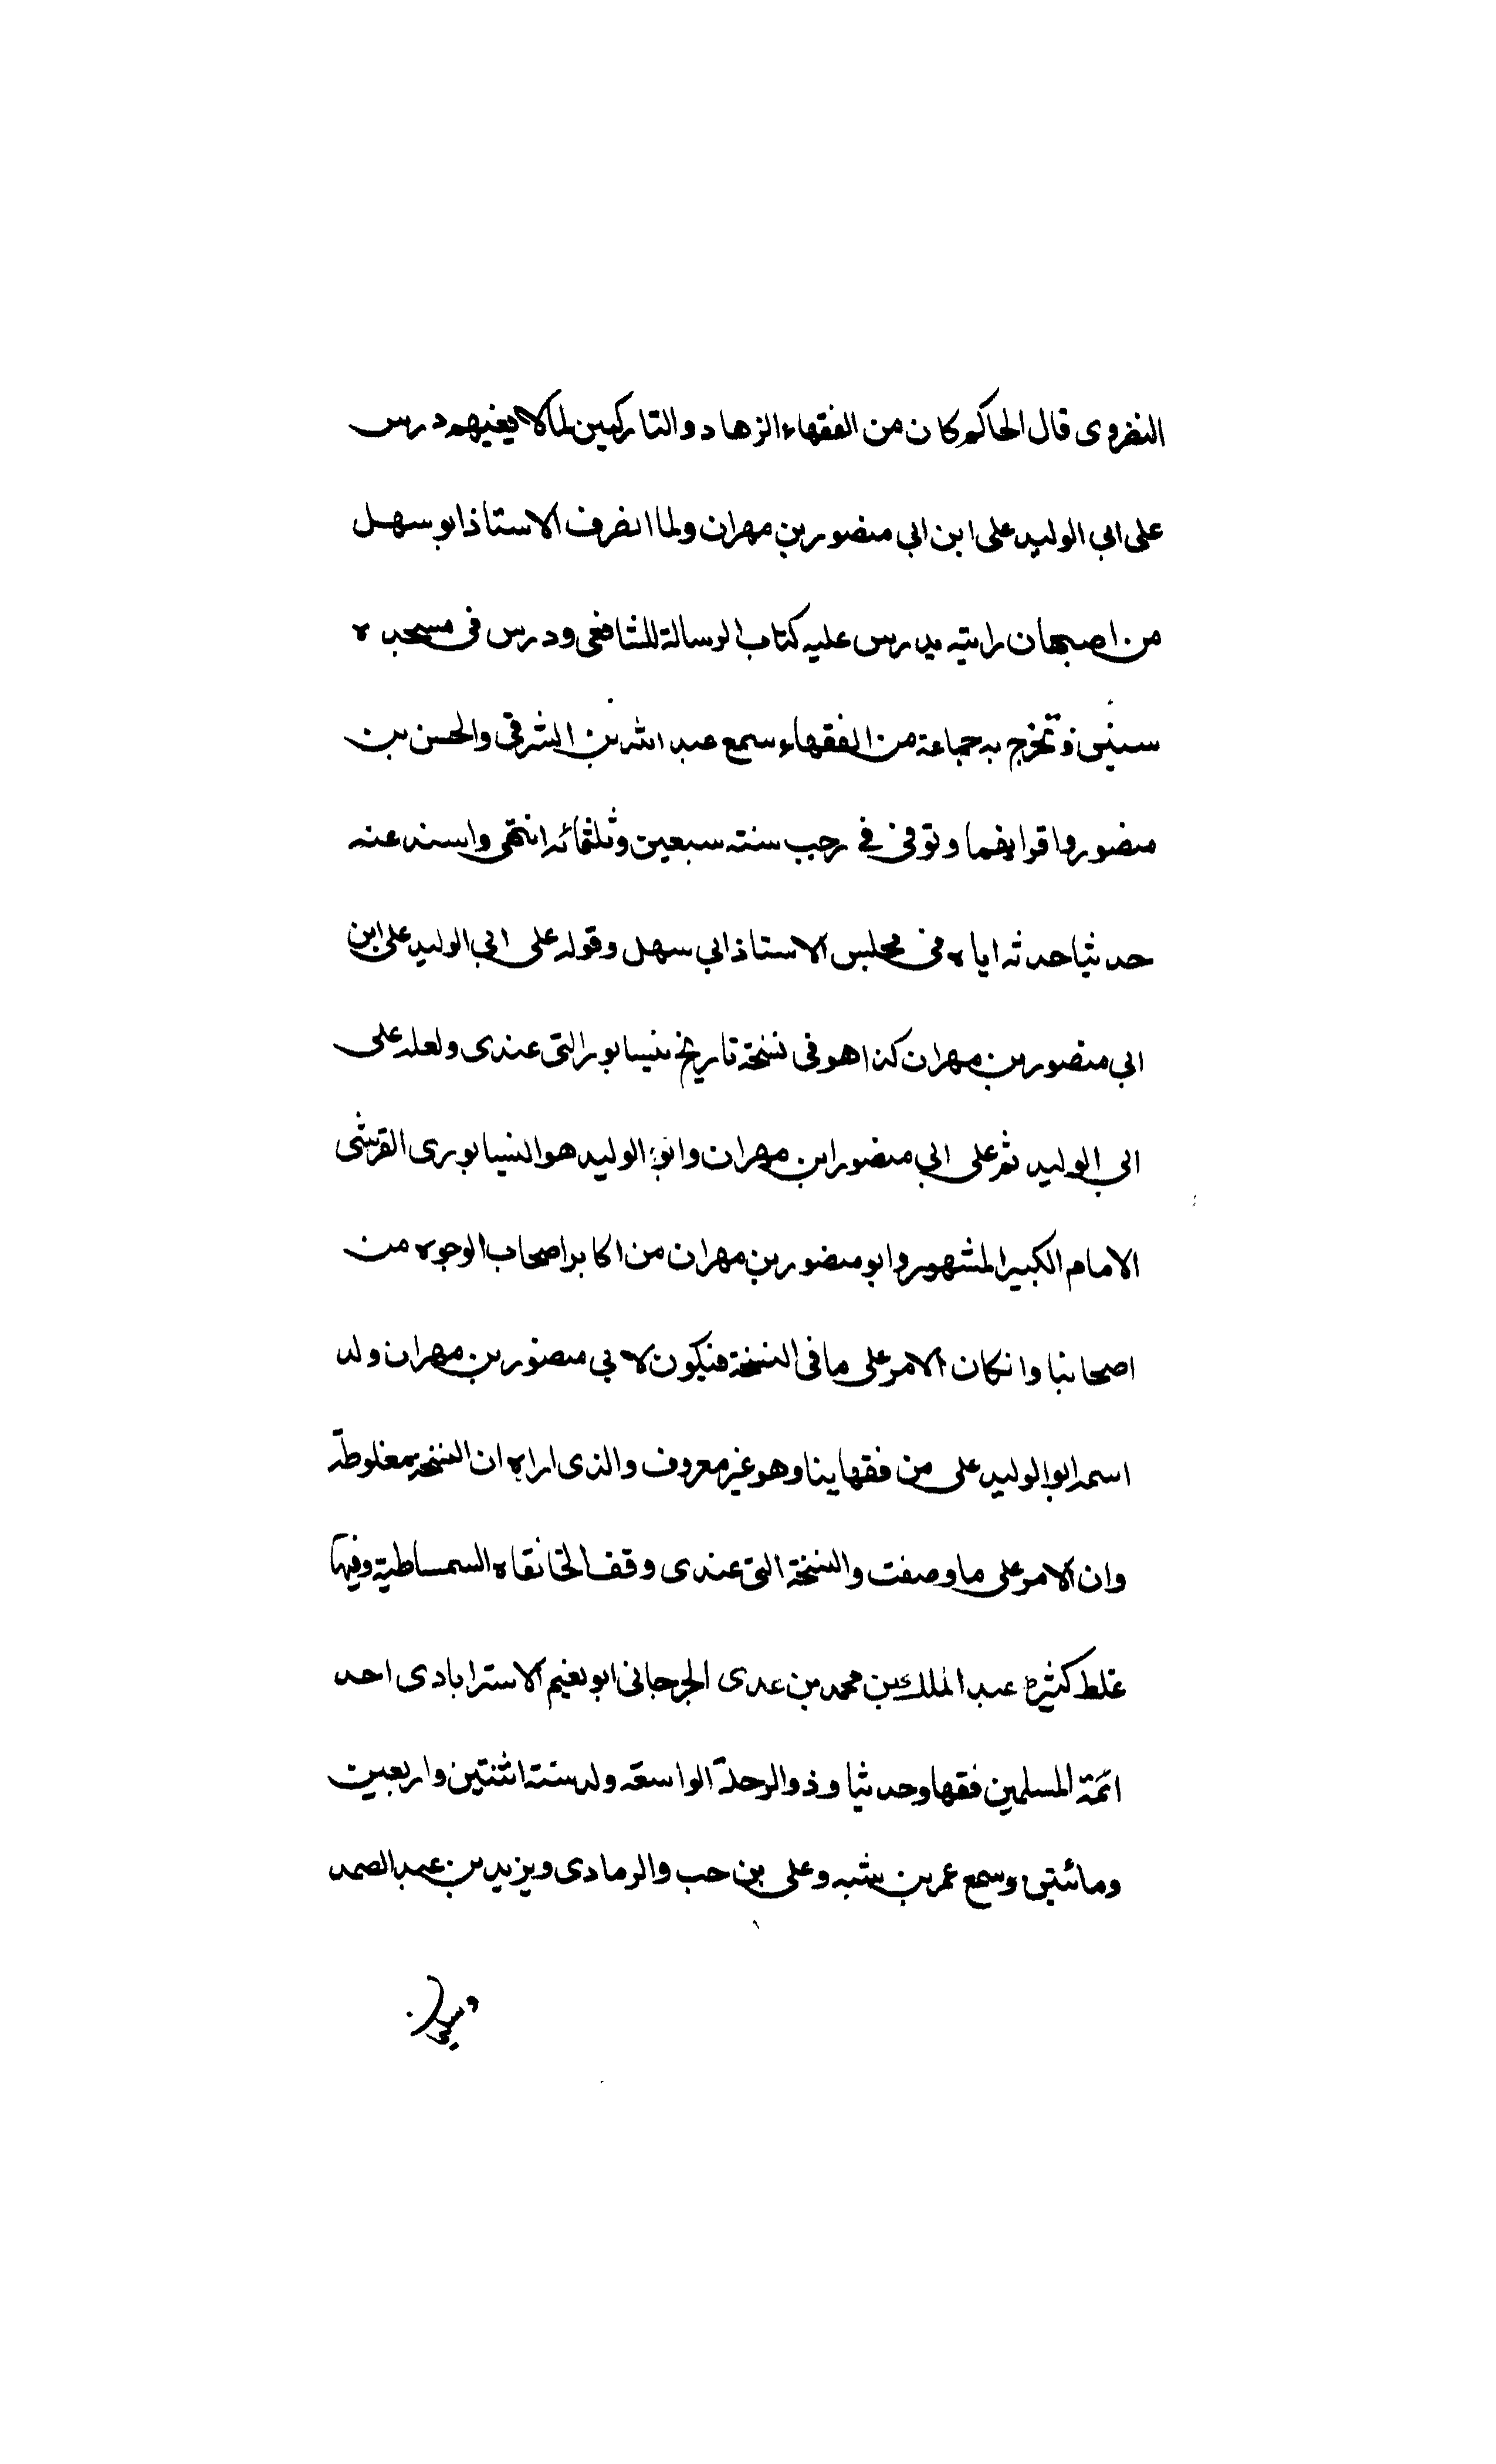 النضروى قال الحاكم كان من الفقهاء الزهاد والتاركين لما لا يعنيهم درس
على ابى الوليد على ابن ابى منصور بن مهران ولما انصرف الاستاذ ابو سهل
من اصبهان رايته يدرس عليه كتاب الرسالة للشافعى ودرس فى مسجده
سنين وتخرج به جماعة من الفقهاء سمع عبد الله بن الشرقى والحسن بن
منصور واقرانهما وتوفى فى رجب سنة سبعين وثلثمائه انتهى واسند عنه
حديثا حدثه اياه فى مجلس الاستاذ ابى سهل وقوله على ابى الوليد على ابن
ابى منصور بن مهران كذا هو فى نسخة تاريخ نيسابور التى عندى ولعله على
ابى الوليد ثم على ابى منصور ابن مهران وابو الوليد هو النيسابورى القرشى
الامام الكبير المشهور وابو منصور بن مهران من اكابر اصحاب الوجوه من
اصحابنا وانكان الامر على ما فى النسخة فيكون لابى منصور بن مهران ولد
اسمه ابو الوليد على من فقهاينا وهو غير معروف والذى اراه ان النسخة مغلوطة
وان الامر على ما وصفت والنسخة التى عندى وقف الخانقاه السمساطية وفيها
غلط كثير عبد الملك بن محمد بن عدى الجرجانى ابو نعيم الاسترابادى احد
ائمة المسلمين فقها وحديثا وذو الرحلة الواسعة ولد سنة اثنتين واربعين
ومائتين وسمع عمر بن شبه وعلى بن حب والرمادى ويزيد بن عبد الصمد